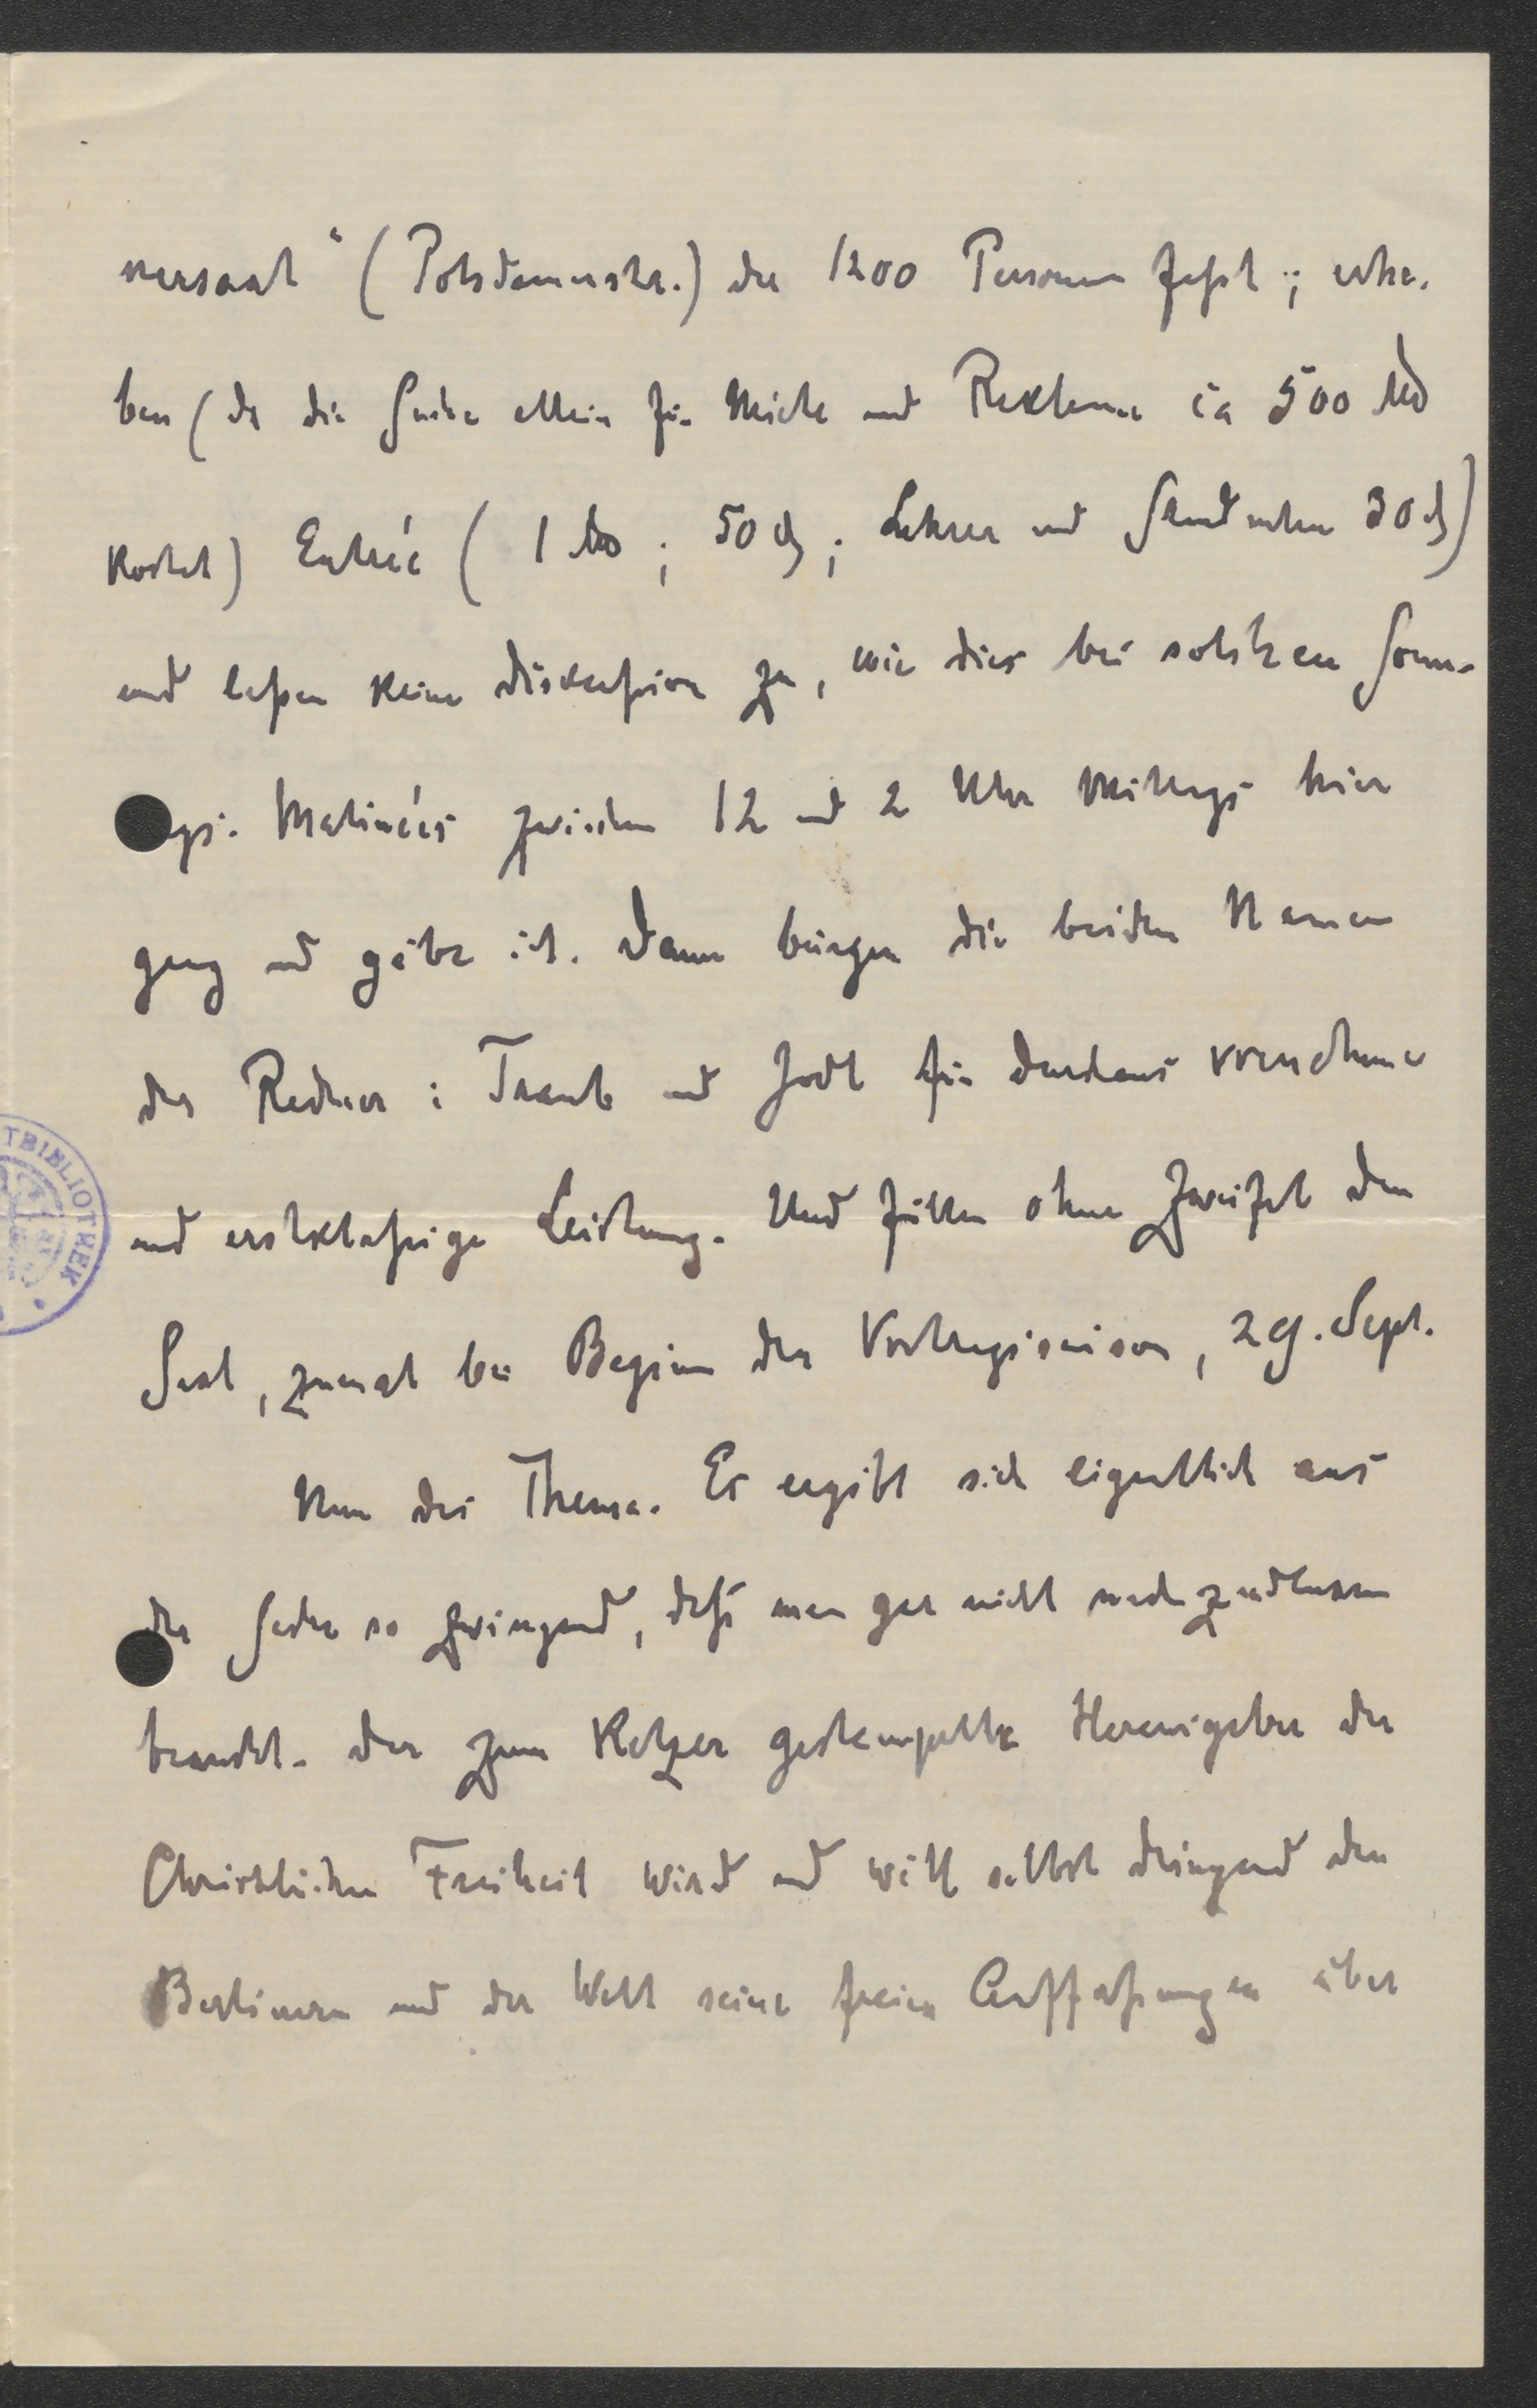 nersaal“ (Potsdamerstr.) der 1200 Personen faßt; erhe-
ben (da die Sache allein für Miete und Reklame ca 500 M
kostet) Entréé (1 M; 50 ₰; Lehrer und Studenten 30 ₰)
und laßen keine Diskussion zu, wie dies bei solchen Sonn-
tags. Matinéés zwischen 12 und 2 Uhr Mittags hier
gang und gäbe ist. Dann bürgen die beiden Namen
der Redner: Traub und Jodl für durchaus vornehme
und erstklaßige Leistung. Und füllen ohne Zweifel den
Saal, zumal bei Beginn der Vortragssaison, 29. Sept.
Nun das Thema. Es ergibt sich eigentlich aus
der Sache so zwingend, daß man gar nicht nachzudenken
braucht. Der zum Ketzer gestempelte Herausgeber der
Christlichen Freiheit wird und will selbst dringend den
Berlinern und der Welt seine freien Auffaßungen über
TBIBLIOTHEK